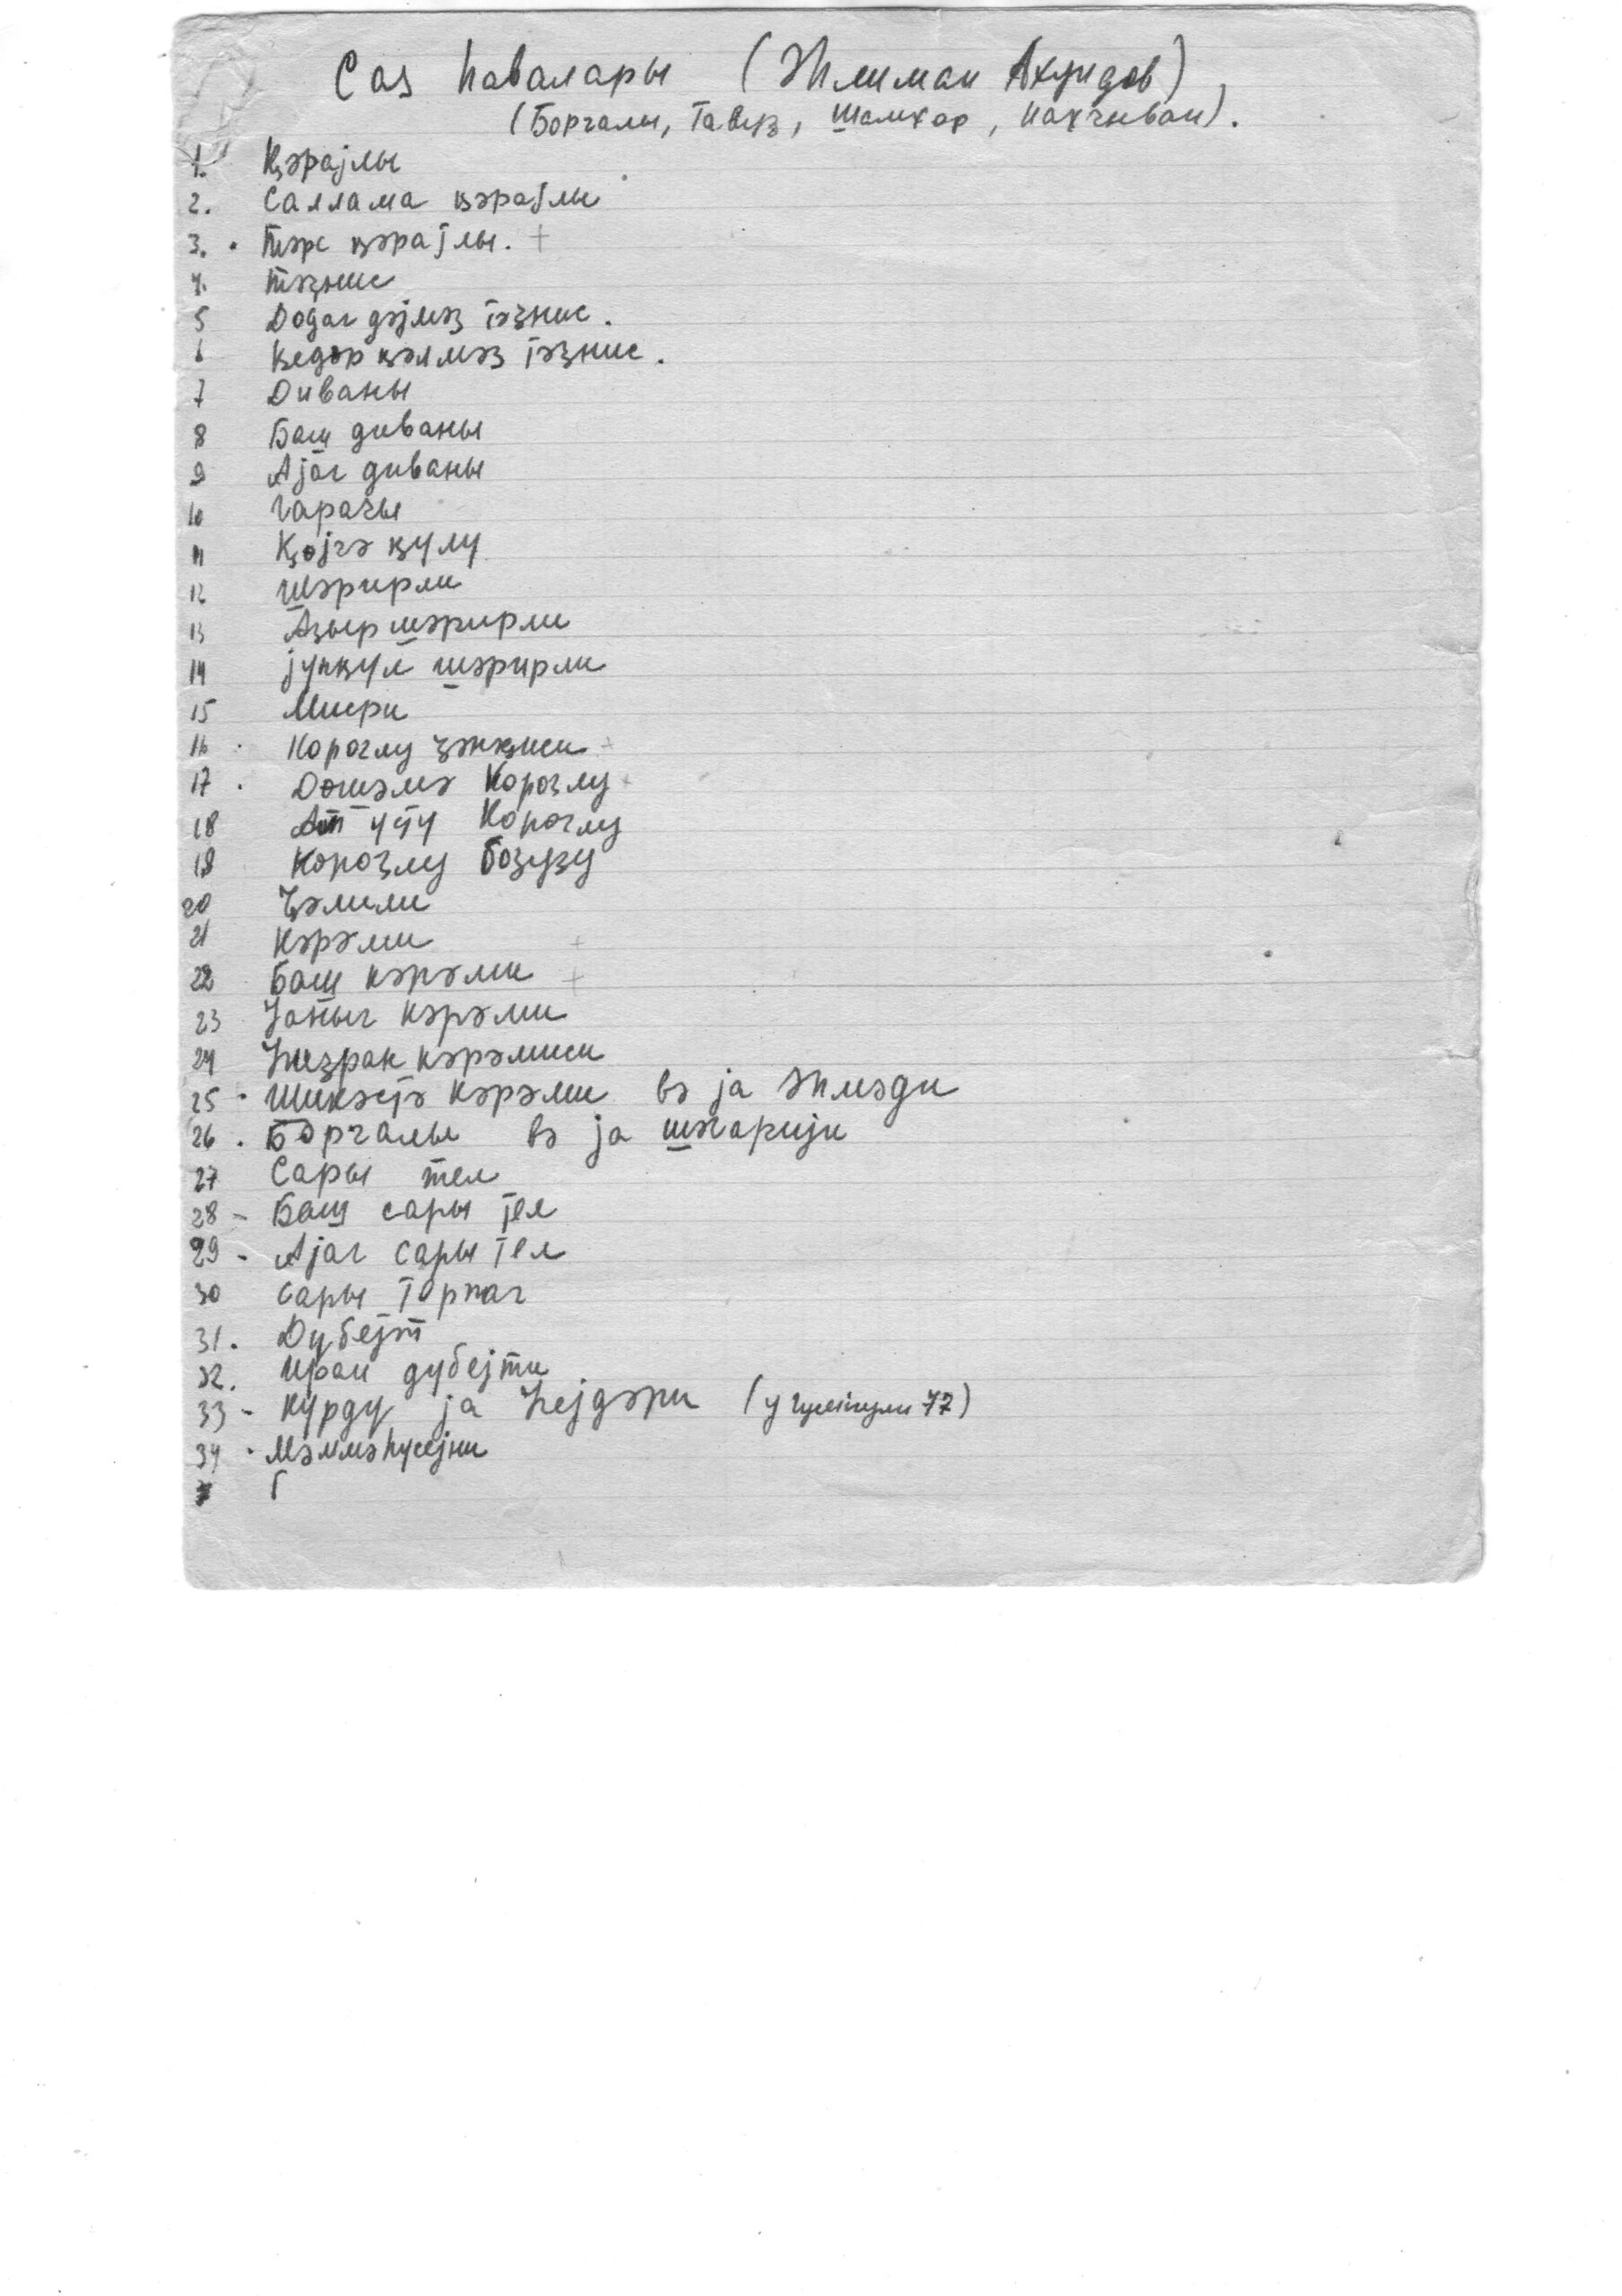 Саз һавалары (Әһлиман Ахундов)
(Борчалы, Тавуз, Шамхор, Нахчыван).
1. Ҝәрајлы
2. Саллама ҝәрајлы
3. Тәрс ҝәрајлы. +
4. Тәҹнис
5 Додаг дәјмәз тәҹнис.
6 Ҝедәр ҝәлмәз тәҹнис.
7 Диваны
8 Баш диваны
9 Ајаг диваны
10 Гарачы
11 Ҝөјчә ҝулу
12 Шәрирли
13 Ағыр шәрирли
14 Јүнҝүл шәрирли
15 Мисри
16 Короғлу ҹәнҝиси +
17 Дөшәмә Короғлу
18 Ат үстү Короғлу
19 Короғлу бозуғу
20 Ҹәлили
21 Кәрәми +
22 Баш кәрәми +
23 Јаныг кәрәми
24 Кәрәмиси
25 Шикәстә кәрәми вә ја Әһмәди
26 Борчалы вә ја
27 Сары тел
28 - Баш сары тел
29 - Ајаг сары тел
30 Сары торпаг
31. Дубејт
32. Иран дубејти
33 - Күрдү ја Һејдәри
34 Мәммәһүсејни